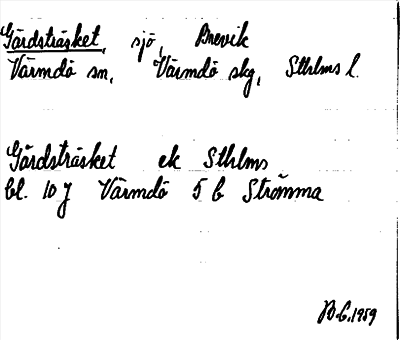 Gårdsträsket, sjö, Brevik
Värmdö sn, Värmdö skg, Sthlms l.
Gårdsträsket ek Sthlms
bl. 10 J Värmdö 5 b Strömma
B.G. 1959